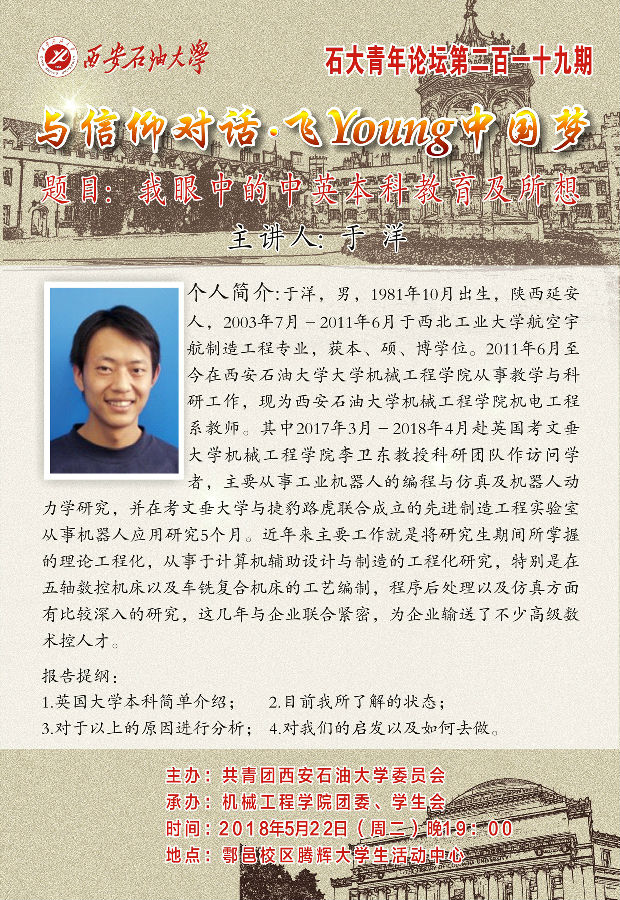 西安石油大学
石大青年论坛第二百一十九期
与信仰对话·飞Young中国梦
题目：我眼中的中英本科教育及所想
主讲人：于 洋
个人简介:于洋，男，1981年10月出生，陕西延安
人，2003年7月－2011年6月于西北工业大学航空宇
航制造工程专业，获本、硕、博学位。2011年6月至
今在西安石油大学大学机械工程学院从事教学与科
研工作，现为西安石油大学机械工程学院机电工程
系教师。其中2017年3月－2018年4月赴英国考文垂
大学机械工程学院李卫东教授科研团队作访问学
者，主要从事工业机器人的编程与仿真及机器人动
力学研究，并在考文垂大学与捷豹路虎联合成立的先进制造工程实验室
从事机器人应用研究5个月。近年来主要工作就是将研究生期间所掌握
的理论工程化，从事于计算机辅助设计与制造的工程化研究，特别是在
五轴数控机床以及车铣复合机床的工艺编制，程序后处理以及仿真方面
有比较深入的研究，这几年与企业联合紧密，为企业输送了不少高级数
术控人才。
报告提纲：
1.英国大学本科简单介绍； 2.目前我所了解的状态；
3.对于以上的原因进行分析； 4.对我们的启发以及如何去做。
主办：共青团西安石油大学委员会
承办：机械工程学院团委、学生会
时间：2018年5月22日（周二）晚19：00
地点：鄠邑校区腾辉大学生活动中心